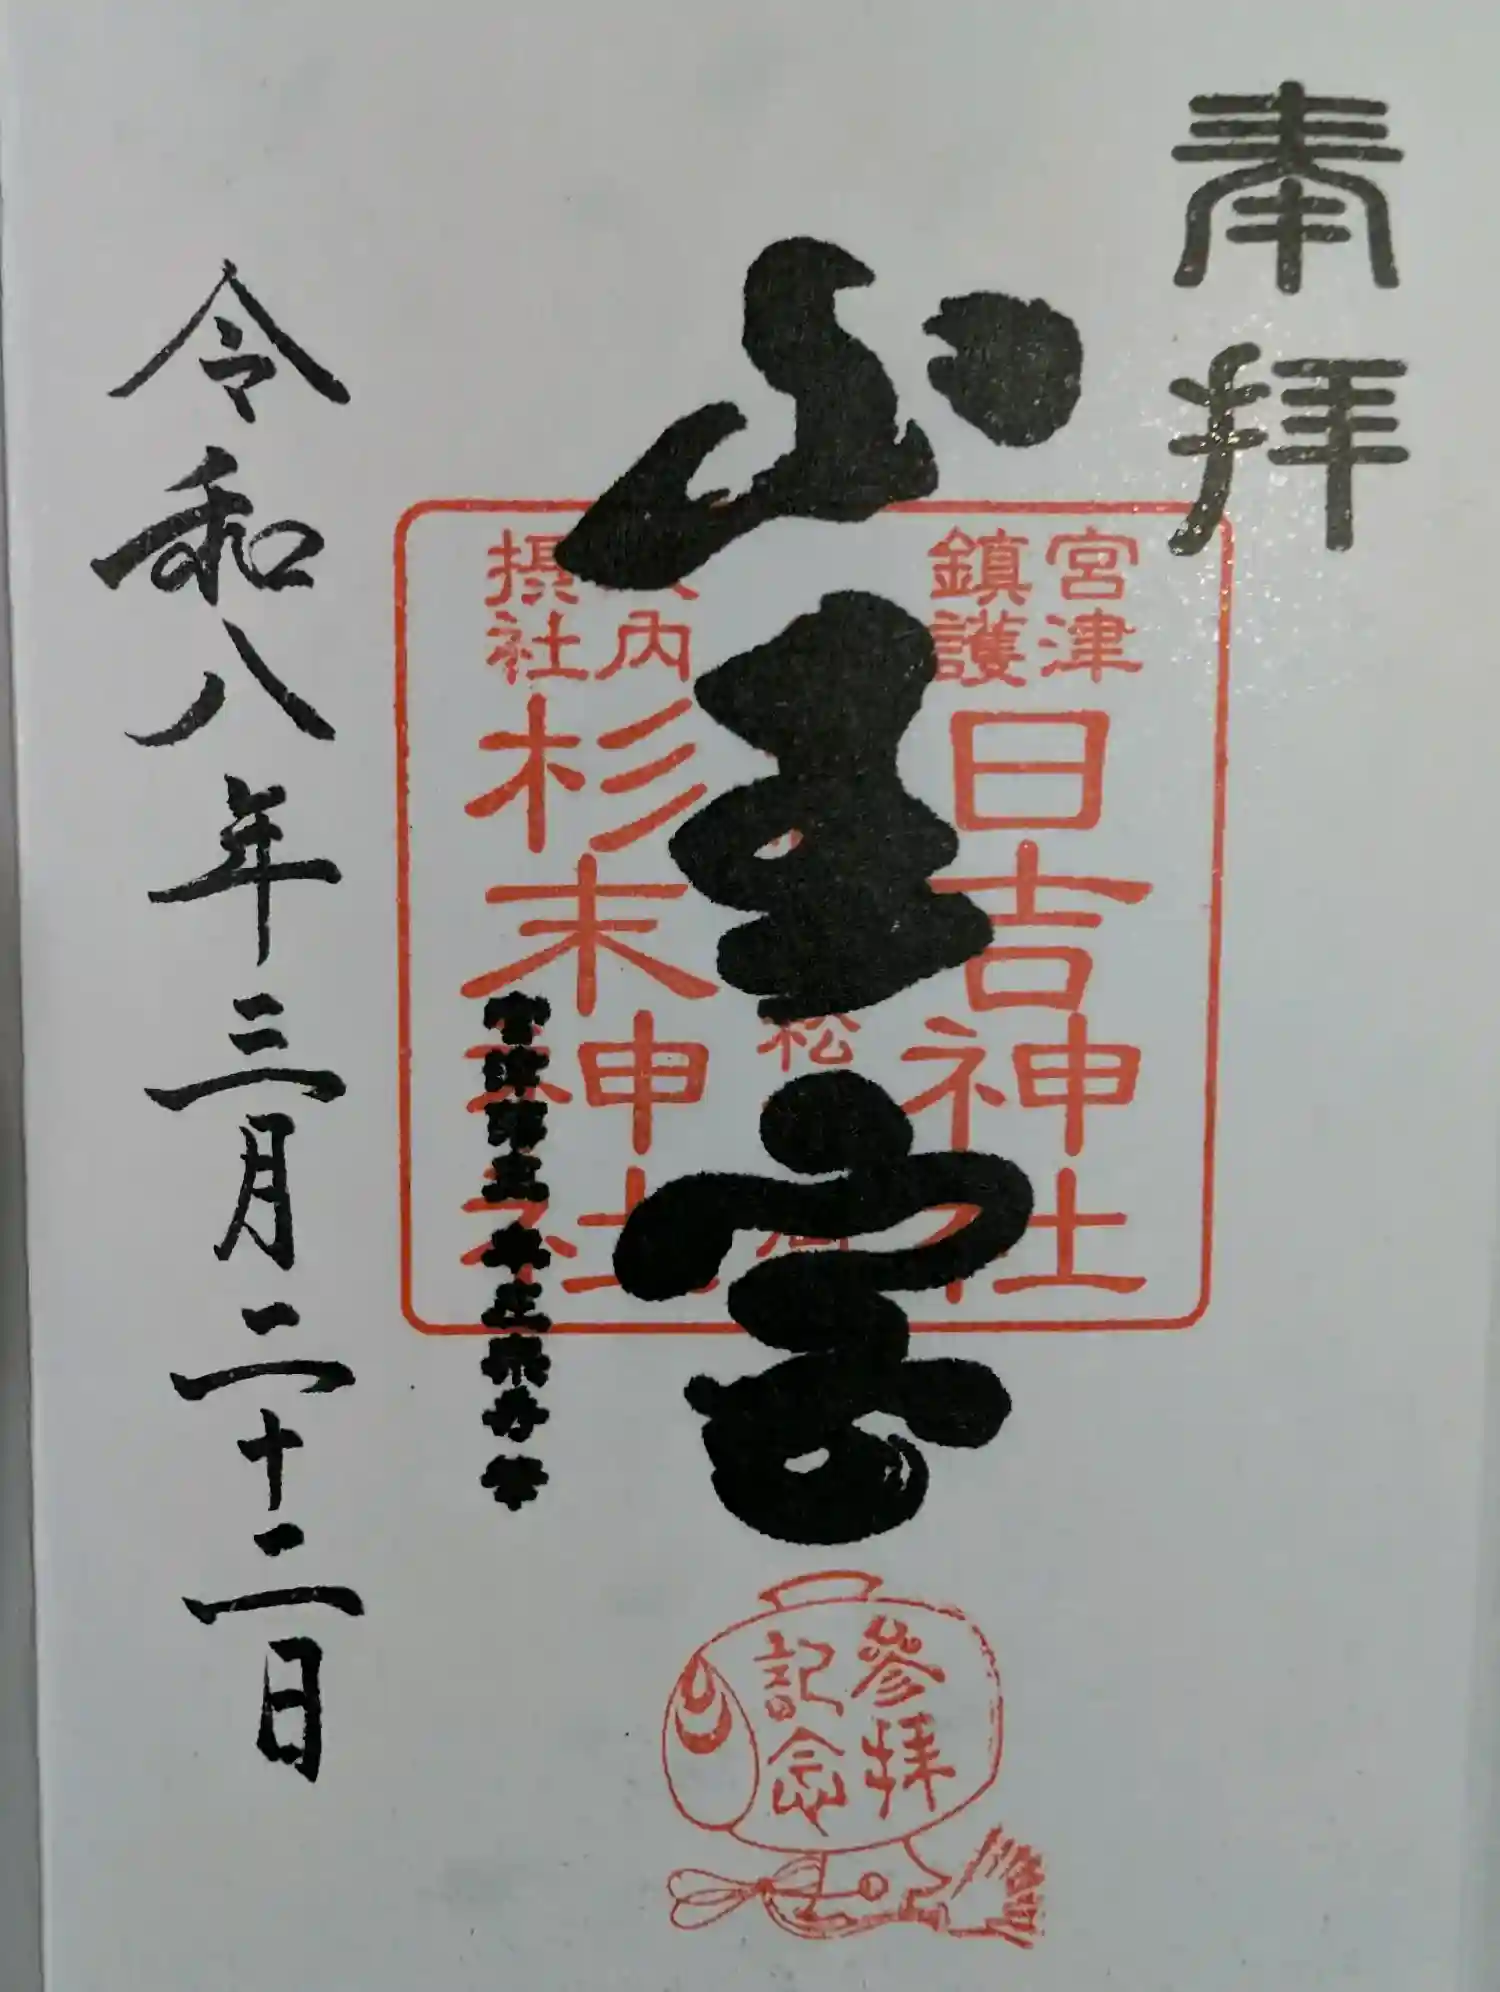 奉拝
山王宮
宮津
鎮護
日吉神社
松
内
摂社
杉末神社
令和八年三月二十二日
参拝
記念